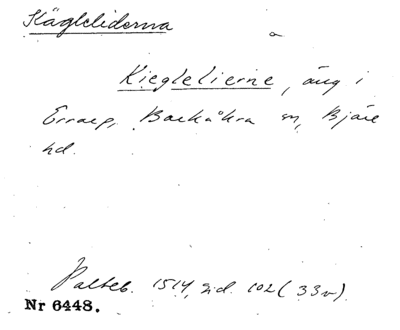 Kägleliderna
Kieglelierne, äng i
Errarp, Barkåkra sn, Bjäre
hd.
Palteb. 1514, sid. 102 (33v).
Nr 6448.